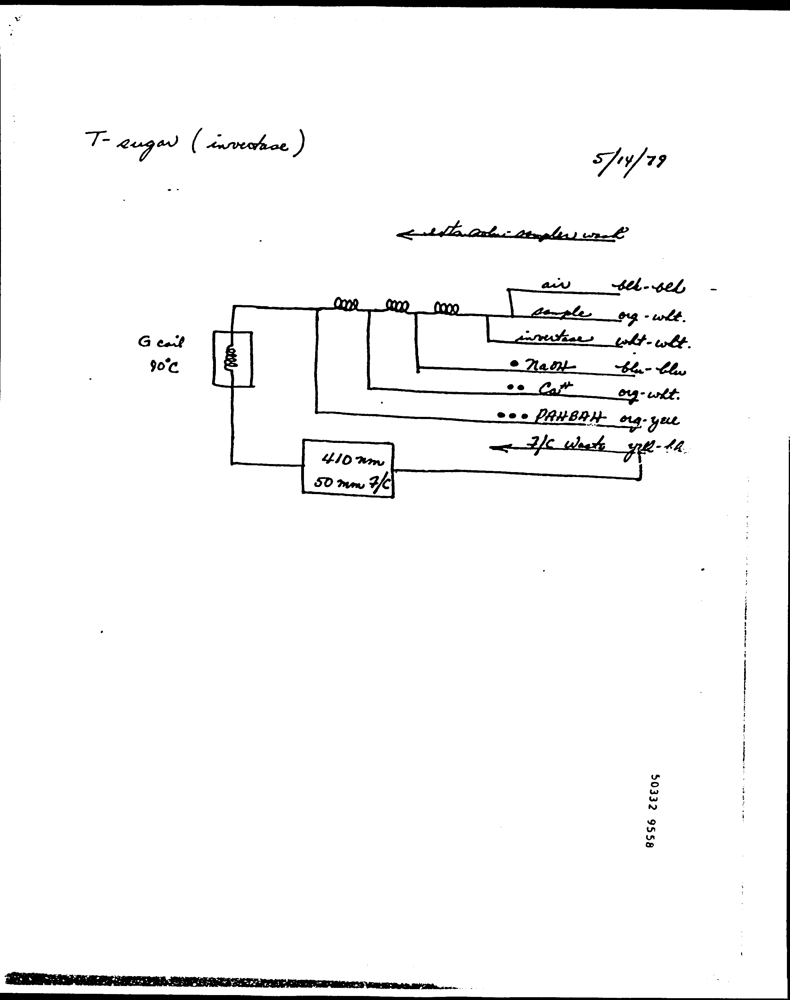 T-sugar (invertase)
5/14/79
sampler wash
air blk-blk
sample org-wht.
invertase wht-wht.
• NaOH blu-blu
•• Ca++ org-wht.
••• PAHBAH org-yell
F/C Waste
G coil
90°C
410 nm
50 mm F/C
50332 9558